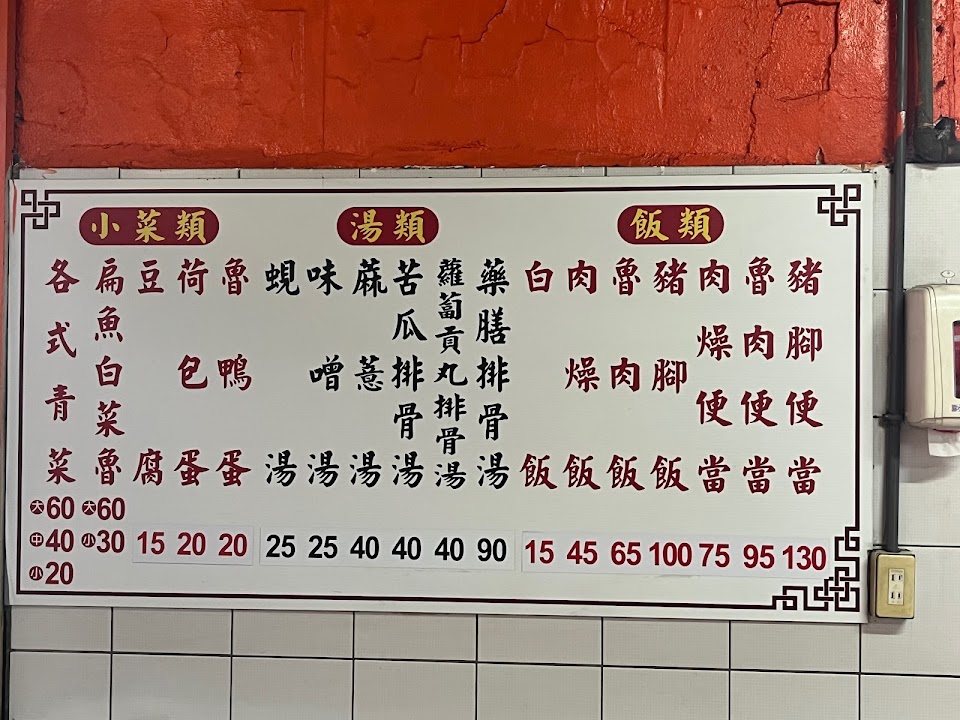 飯類
豬腳便當
130
魯肉便當
95
肉燥便當
75
豬腳飯
100
魯肉飯
65
肉燥飯
45
白飯
15
湯類
藥膳排骨湯
90
蘿蔔貢丸排骨湯
40
苦瓜排骨湯
40
蔴薏湯
40
味噌湯
25
蜆湯
25
小菜類
魯鴨蛋
20
荷包蛋
20
豆腐
15
扁魚白菜魯
大60
小30
各式青菜
大60
中40
小20